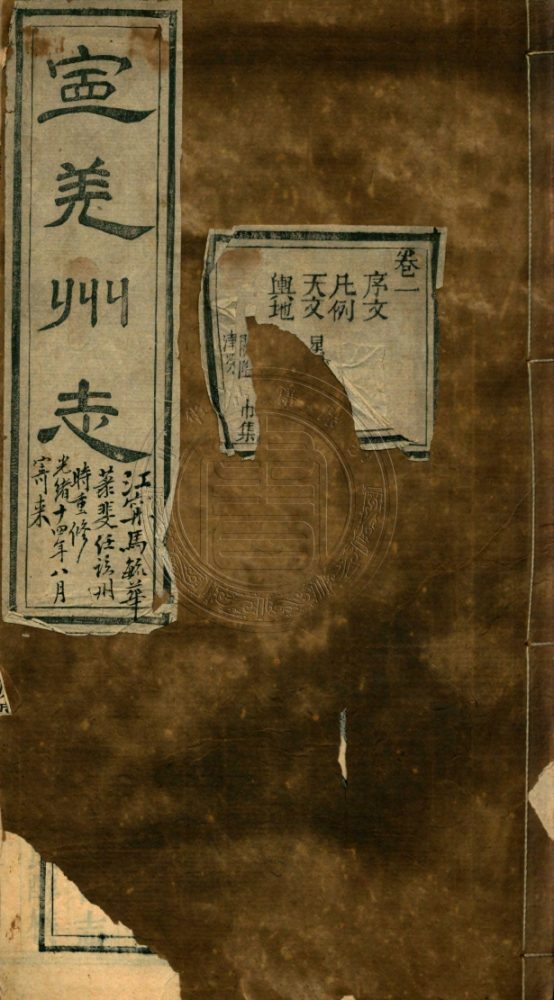 寧羌州志
江寧馬毓華
菉斐任該州
時重修
光緒十四年八月
寄來
卷一
序文
凡例
天文 星
輿地
市集
津梁